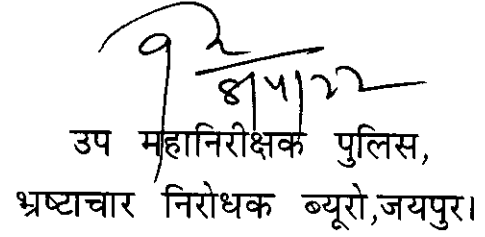 8/5/22
उप महानिरीक्षक पुलिस,
भ्रष्टाचार निरोधक ब्यूरो,जयपुर।